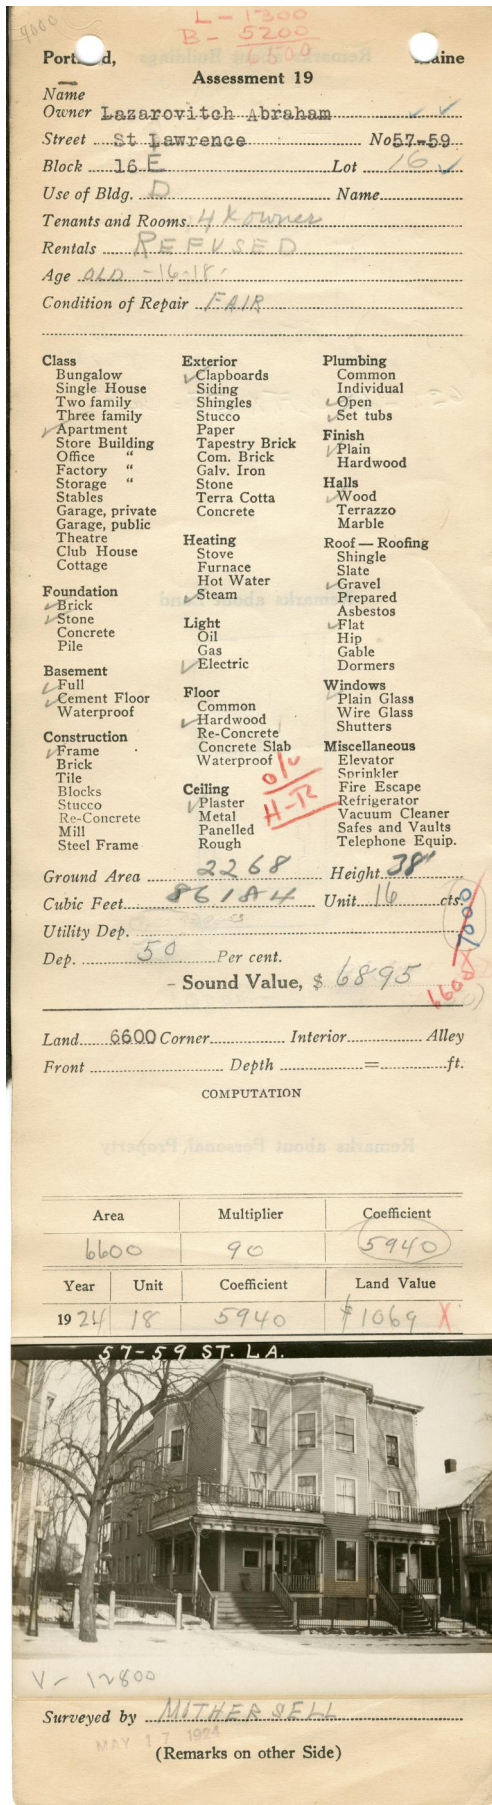 9000
L - 1300
B - 5200
6500
Portland, Maine
Assessment 19
Name
Owner Lazarovitch Abraham
Street St Lawrence No 57-59
Block 16 E Lot 16
Use of Bldg. D Name
Tenants and Rooms 4 X owner
Rentals REFUSED
Age OLD -16-18'
Condition of Repair FAIR
Class
Bungalow
Single House
Two family
Three family
✓ Apartment
Store Building
Office "
Factory "
Storage "
Stables
Garage, private
Garage, public
Theatre
Club House
Cottage
Foundation
✓ Brick
✓ Stone
Concrete
Pile
Basement
✓ Full
✓ Cement Floor
Waterproof
Construction
✓ Frame
Brick
Tile
Blocks
Stucco
Re-Concrete
Mill
Steel Frame
Exterior
✓ Clapboards
Siding
Shingles
Stucco
Paper
Tapestry Brick
Com. Brick
Galv. Iron
Stone
Terra Cotta
Concrete
Heating
Stove
Furnace
Hot Water
✓ Steam
Light
Oil
Gas
✓ Electric
Floor
Common
✓ Hardwood
Re-Concrete
Concrete Slab
Waterproof
Ceiling
✓ Plaster
Metal
Panelled
Rough
Plumbing
Common
Individual
✓ Open
✓ Set tubs
Finish
✓ Plain
Hardwood
Halls
✓ Wood
Terrazzo
Marble
Roof — Roofing
Shingle
Slate
✓ Gravel
Prepared
Asbestos
✓ Flat
Hip
Gable
Dormers
Windows
✓ Plain Glass
Wire Glass
Shutters
Miscellaneous
Elevator
Sprinkler
Fire Escape
Refrigerator
Vacuum Cleaner
Safes and Vaults
Telephone Equip.
H-R
Ground Area 2268 Height 38'
Cubic Feet 86184 Unit 16 cts.
Utility Dep.
7000
Dep. 50 Per cent.
6600
- Sound Value, $ 6895
Land 6600 Corner Interior Alley
Front Depth = ft.
COMPUTATION
Area Multiplier Coefficient
6600 90 5940
Year Unit Coefficient Land Value
1924 18 5940 $1069 X
57-59 ST. LA.
V - 12800
Surveyed by MITHERSELL
MAY 17 1924
(Remarks on other Side)